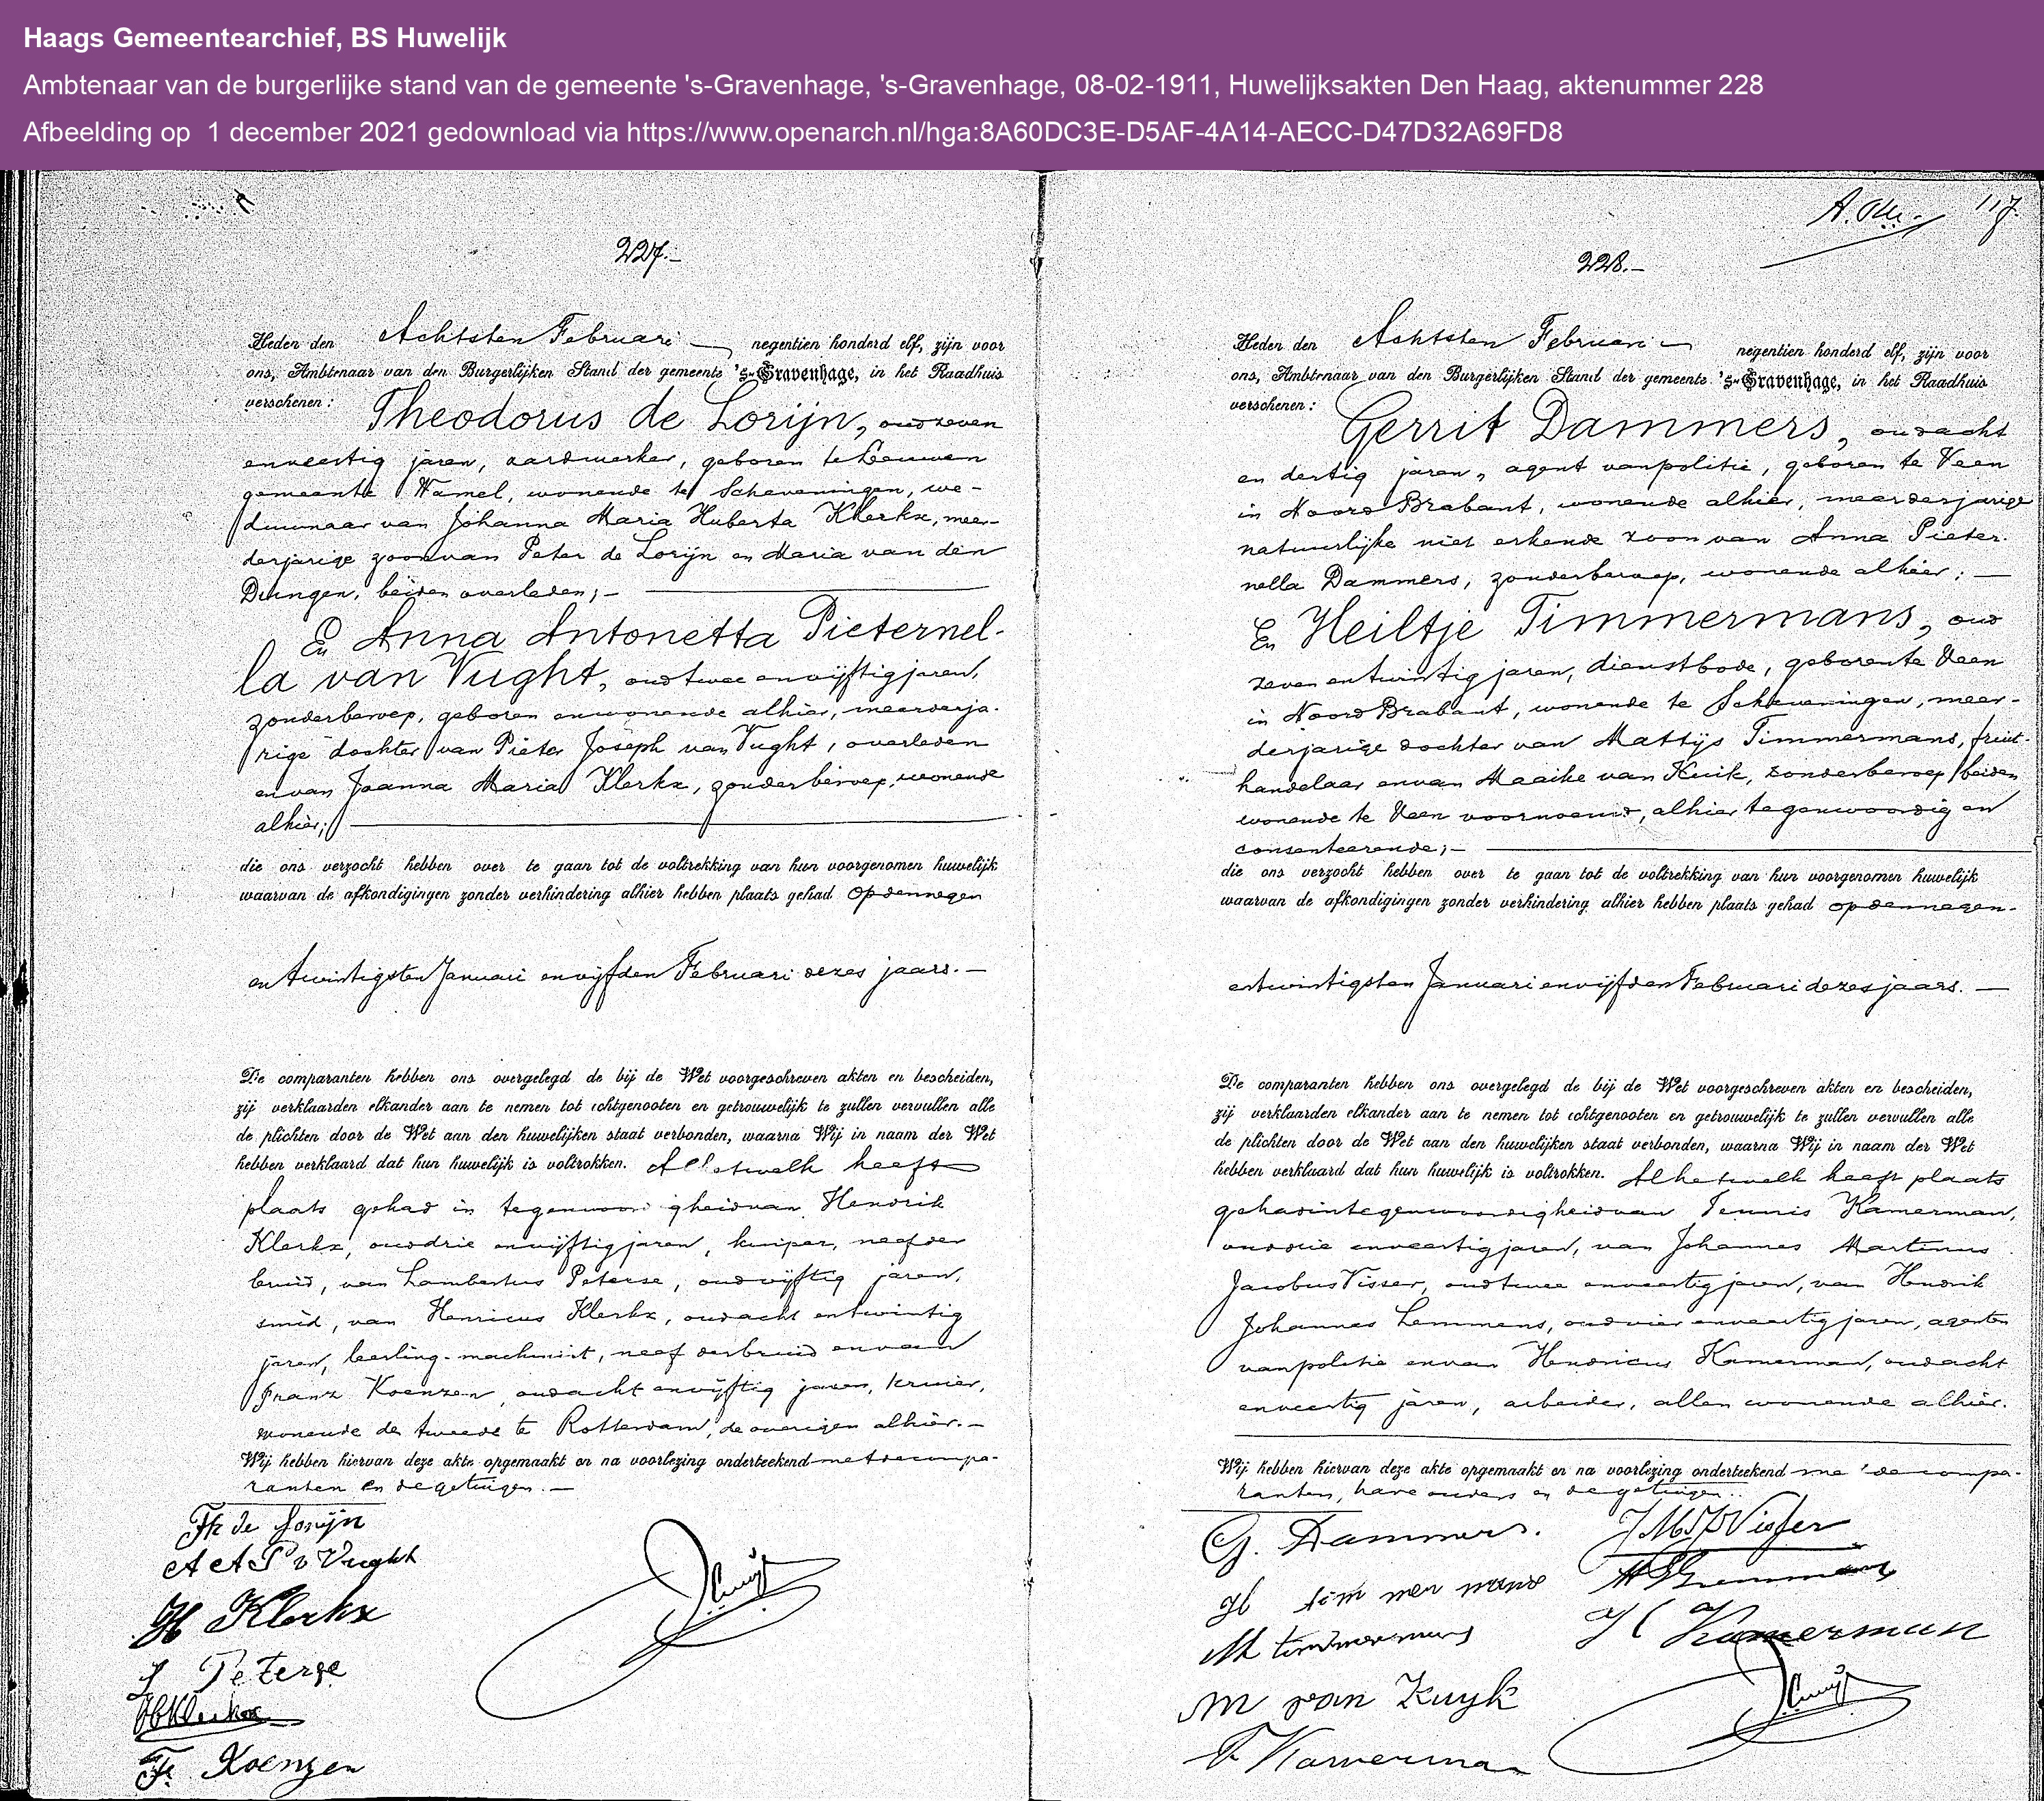 Haags Gemeentearchief, BS Huwelijk
Ambtenaar van de burgerlijke stand van de gemeente 's-Gravenhage, 's-Gravenhage, 08-02-1911, Huwelijksakten Den Haag, aktenummer 228
Afbeelding op 1 december 2021 gedownload via https://www.openarch.nl/hga:8A60DC3E-D5AF-4A14-AECC-D47D32A69FD8
227.-
Heden den Achtsten Februari negentien honderd elf, zijn voor
ons, Ambtenaar van den Burgerlijken Stand der gemeente 's-Gravenhage, in het Raadhuis
verschenen: Theodorus de Lorijn, oud zeven
en veertig jaren, aardwerker, geboren te Leeuwen
gemeente Wamel, wonende te Scheveningen, we-
duwnaar van Johanna Maria Huberta Klerkx, meer-
derjarige zoon van Peter de Lorijn en Maria van den
Dungen, beiden overleden;-
En Anna Antonetta Pieternel-
la van Vught, oud twee en vijftig jaren,
zonder beroep, geboren en wonende alhier, meerderja-
rige dochter van Pieter Joseph van Vught, overleden
en van Joanna Maria Klerkx, zonder beroep, wonende
alhier;
die ons verzocht hebben over te gaan tot de voltrekking van hun voorgenomen huwelijk
waarvan de afkondigingen zonder verhindering alhier hebben plaats gehad op den negen
en twintigsten Januari en vijfden Februari dezes jaars.-
De comparanten hebben ons overgelegd de bij de Wet voorgeschreven akten en bescheiden,
zij verklaarden elkander aan te nemen tot echtgenooten en getrouwelijk te zullen vervullen alle
de plichten door de Wet aan den huwelijken staat verbonden, waarna Wij in naam der Wet
hebben verklaard dat hun huwelijk is voltrokken. Al hetwelk heeft
plaats gehad in tegenwoordigheid van Hendrik
Klerkx, oud drie en vijftig jaren, kuiper, neef der
bruid, van Lambertus Peterse, oud vijftig jaren,
smid, van Henricus Klerkx, oud acht en twintig
jaren, leerling-machinist, neef der bruid en van
Franz Koenzen, oud acht en vijftig jaren, kruier,
wonende de tweede te Rotterdam, de overigen alhier.-
Wij hebben hiervan deze akte opgemaakt en na voorlezing onderteekend met de compa-
ranten en de getuigen.-
Th de Lorijn
A A P v Vught
H Klerkx
L Peterse
H Klerkx
Fr Koenzen
117.
228.-
Heden den Achtsten Februari negentien honderd elf, zijn voor
ons, Ambtenaar van den Burgerlijken Stand der gemeente 's-Gravenhage, in het Raadhuis
verschenen: Gerrit Dammers, oud acht
en dertig jaren, agent van politie, geboren te Veen
in Noord Brabant, wonende alhier, meerderjarige
natuurlijke niet erkende zoon van Anna Pieter-
nella Dammers, zonder beroep, wonende alhier;
En Heiltje Timmermans, oud
zeven en twintig jaren, dienstbode, geboren te Veen
in Noord Brabant, wonende te Scheveningen, meer-
derjarige dochter van Mattijs Timmermans, fruit-
handelaar en van Maaike van Kuik, zonder beroep, beiden
wonende te Veen voornoemd, alhier tegenwoordig en
consenteerende;-
die ons verzocht hebben over te gaan tot de voltrekking van hun voorgenomen huwelijk
waarvan de afkondigingen zonder verhindering alhier hebben plaats gehad op den negen-
entwintigsten Januari en vijfden Februari dezes jaars.
De comparanten hebben ons overgelegd de bij de Wet voorgeschreven akten en bescheiden,
zij verklaarden elkander aan te nemen tot echtgenooten en getrouwelijk te zullen vervullen alle
de plichten door de Wet aan den huwelijken staat verbonden, waarna Wij in naam der Wet
hebben verklaard dat hun huwelijk is voltrokken. Al hetwelk heeft plaats
gehad in tegenwoordigheid van Teunis Kamerman,
oud drie en veertig jaren, van Johannes Martinus
Jacobus Visser, oud twee en veertig jaren, van Hendrik
Johannes Lemmens, oud vier en veertig jaren, agenten
van politie en van Hendricus Kamerman, oud acht
en veertig jaren, arbeider, allen wonende alhier.
Wij hebben hiervan deze akte opgemaakt en na voorlezing onderteekend met de compa-
ranten, hare ouders en de getuigen.
G. Dammers.
J M J Visser
H timmermans
M timmermans
H Kamerman
M van Kuyk
T Kamerman